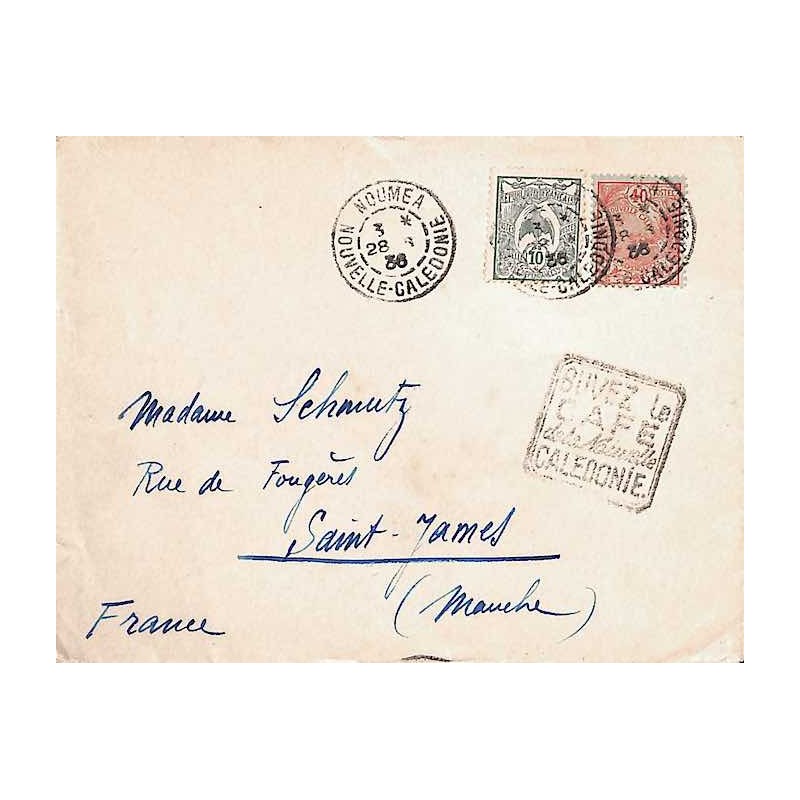 NOUMEA *
3
28
36
NOUVELLE-CALEDONIE
REPUBLIQUE FRANÇAISE
10
36
LLE-CALEDONIE
40
36
CALEDONIE
BUVEZ le
CAFE
de la Nouvelle
CALEDONIE
Madame Schmutz
Rue de Fougères
Saint-James
(Manche)
France